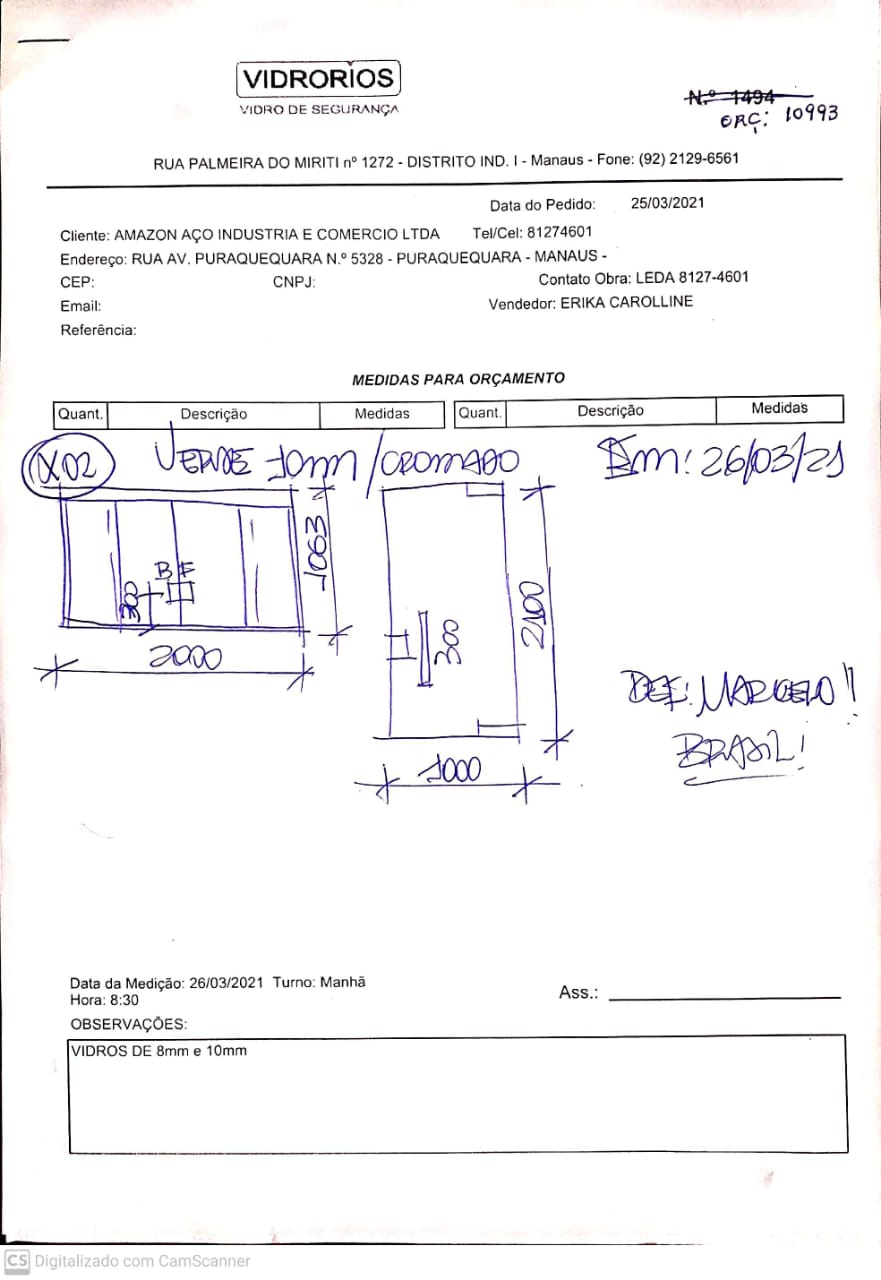 VIDRORIOS
VIDRO DE SEGURANÇA
N.º 1494
ORÇ: 10993
RUA PALMEIRA DO MIRITI nº 1272 - DISTRITO IND. I - Manaus - Fone: (92) 2129-6561
Data do Pedido: 25/03/2021
Cliente: AMAZON AÇO INDUSTRIA E COMERCIO LTDA Tel/Cel: 81274601
Endereço: RUA AV. PURAQUEQUARA N.º 5328 - PURAQUEQUARA - MANAUS -
CEP: CNPJ: Contato Obra: LEDA 8127-4601
Email: Vendedor: ERIKA CAROLLINE
Referência:
MEDIDAS PARA ORÇAMENTO
Quant. Descrição Medidas Quant. Descrição Medidas
X02 VERDE 10mm/CROMADO Em: 26/03/21
1063
BF
300
2000
300
2100
1000
DEF: MARCELO!!
BRASIL!
Data da Medição: 26/03/2021 Turno: Manhã
Hora: 8:30
Ass.:
OBSERVAÇÕES:
VIDROS DE 8mm e 10mm
CS Digitalizado com CamScanner